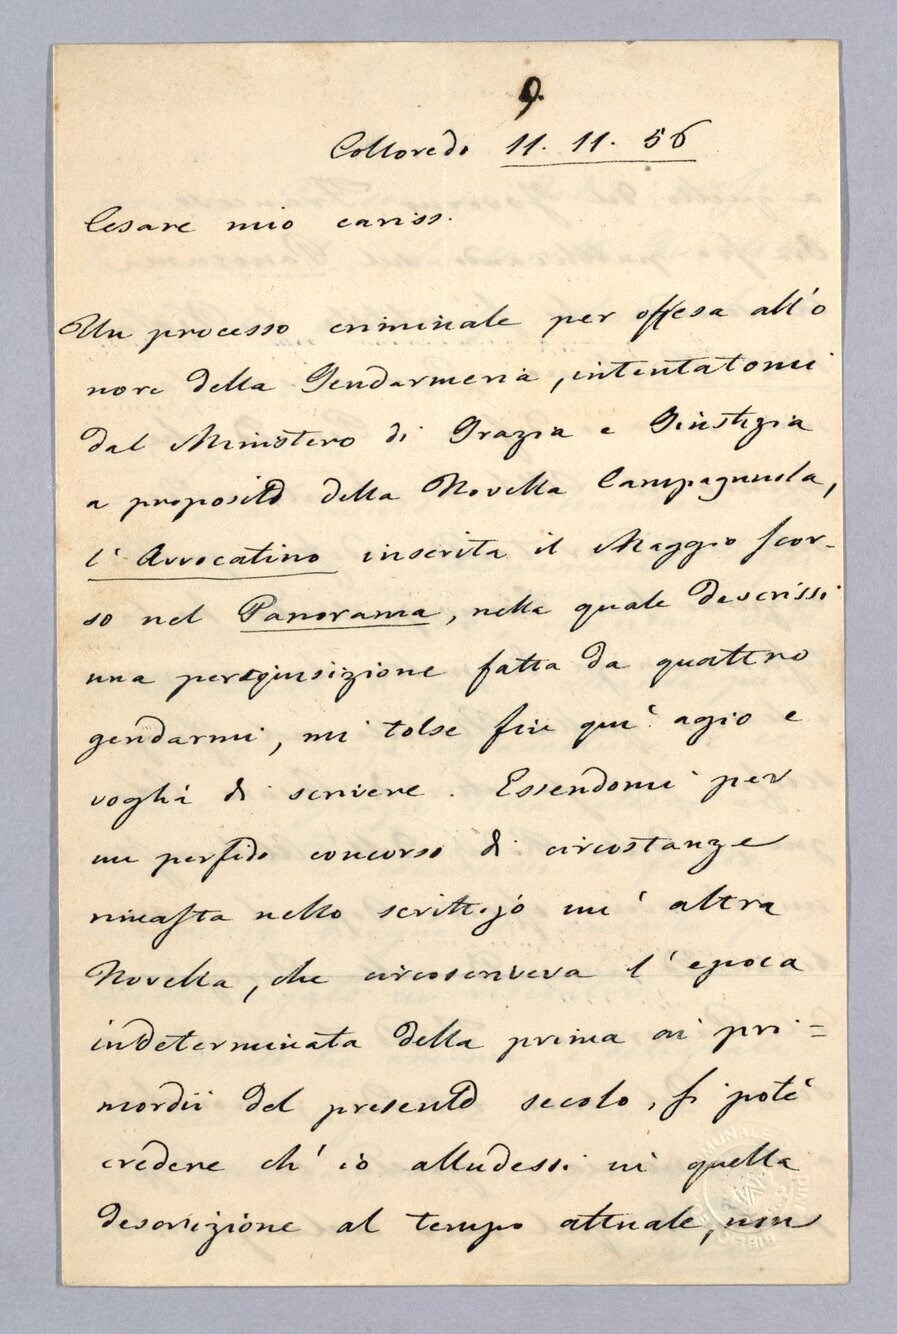 9.
Colloredo 11. 11. 56
Cesare mio cariss.
Un processo criminale per offesa all'o
nore della Gendarmeria, intentatomi
dal Ministero di Grazia e Giustizia
a proposito della Novella Campagnuola,
l'Avvocatino inserita il Maggio scor-
so nel Panorama, nella quale descrissi
una perquisizione fatta da quattro
gendarmi, mi tolse fin quì agio e
voglia di scrivere. Essendomi per
un perfido concorso di circostanze
rimasta nello scrittojo un'altra
Novella, che circoscriveva l'epoca
indeterminata della prima ai pri=
mordii del presente secolo, si potè
credere ch'io alludessi in quella
descrizione al tempo attuale, non